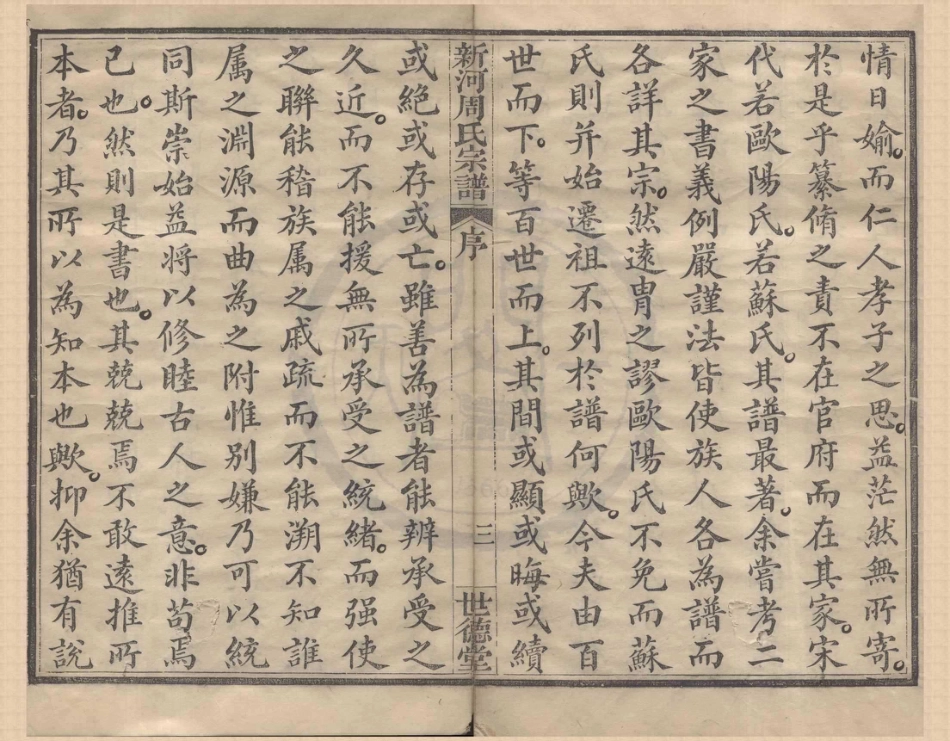 情日媮。而仁人孝子之思。益茫然無所寄。
於是乎纂脩之責不在官府而在其家。宋
代若歐陽氏。若蘇氏。其譜最著。余嘗考二
家之書義例嚴謹法皆使族人各為譜而
各詳其宗。然遠胄之謬歐陽氏不免而蘇
氏則并始遷祖不列於譜何歟。今夫由百
世而下。等百世而上。其間或顯或晦或續
新河周氏宗譜 序 三 世德堂
或絶或存或亡。雖善為譜者能辨承受之
久近。而不能援無所承受之統緒。而强使
之聯能稽族属之戚疏而不能溯不知誰
属之淵源而曲為之附惟别嫌乃可以統
同斯崇始益將以修睦古人之意。非苟焉
已也。然則是書也。其兢兢焉不敢遠推所
本者。乃其所以為知本也歟。抑余猶有說